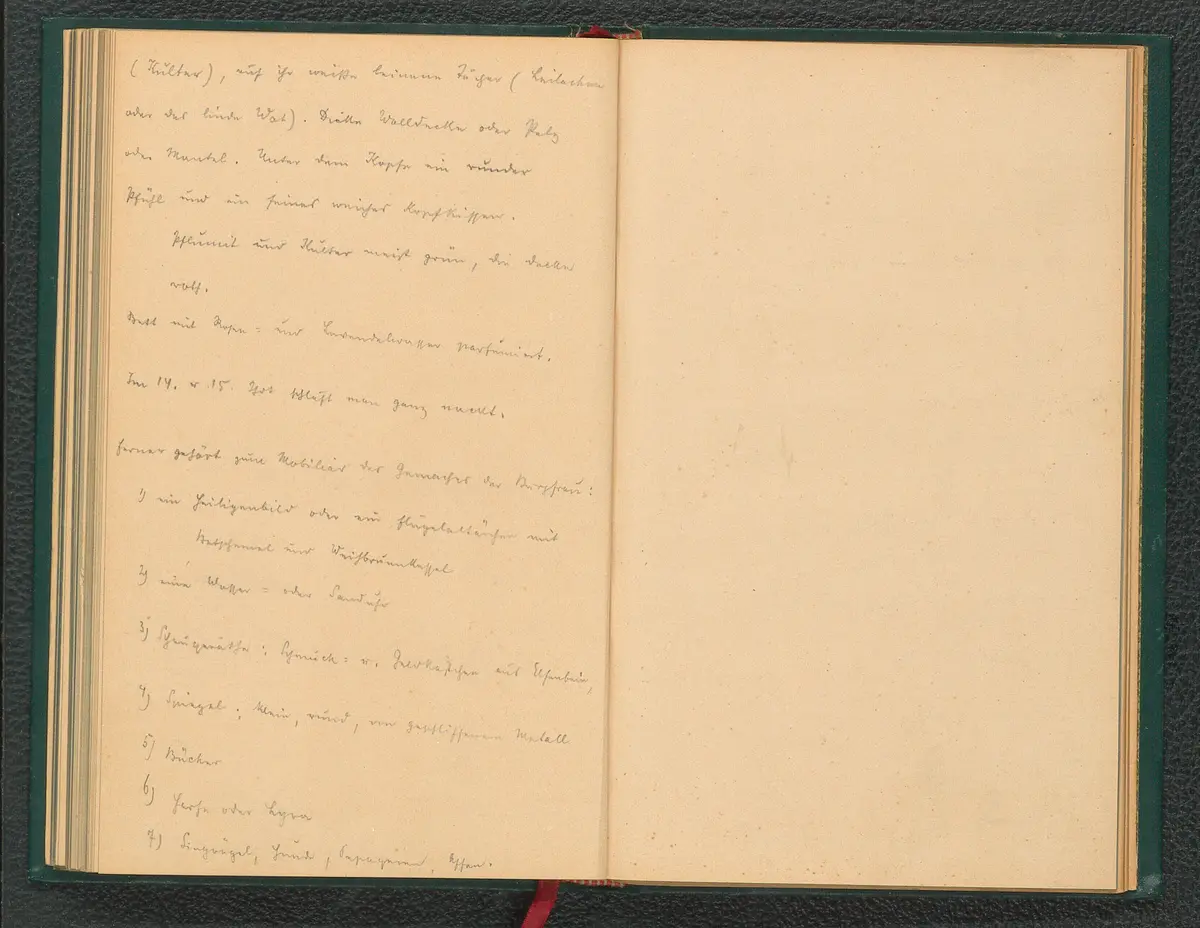 (Kulter), auf ihr weiße leinene Tücher (Leilachen
oder das linde Wat). Dicke Wolldecke oder Pelz
oder Mantel. Unter dem Kopfe ein runder
Pfühl und ein feines weiches Kopfkissen.
Pflumit und Kulter meist grün, die Decke
roth.
Bett mit Rosen= und Lavendelwasser parfümiert.
Im 14. u 15. Jhdt schläft man ganz nackt.
Ferner gehört zum Mobiliar des Gemaches der Burgfrau:
1) ein Heiligenbild oder ein Flügelaltärchen mit
Betschemel und Weihbrunnkessel
2) eine Wasser= oder Sanduhr
3) Schaugeräthe: Schmuck= u. Geldkästchen aus Elfenbein,
4) Spiegel; klein, rund, von geschliffenem Metall
5) Bücher
6) Harfe oder Lyra
7) Singvögel, Hunde, Papageien, Affen.